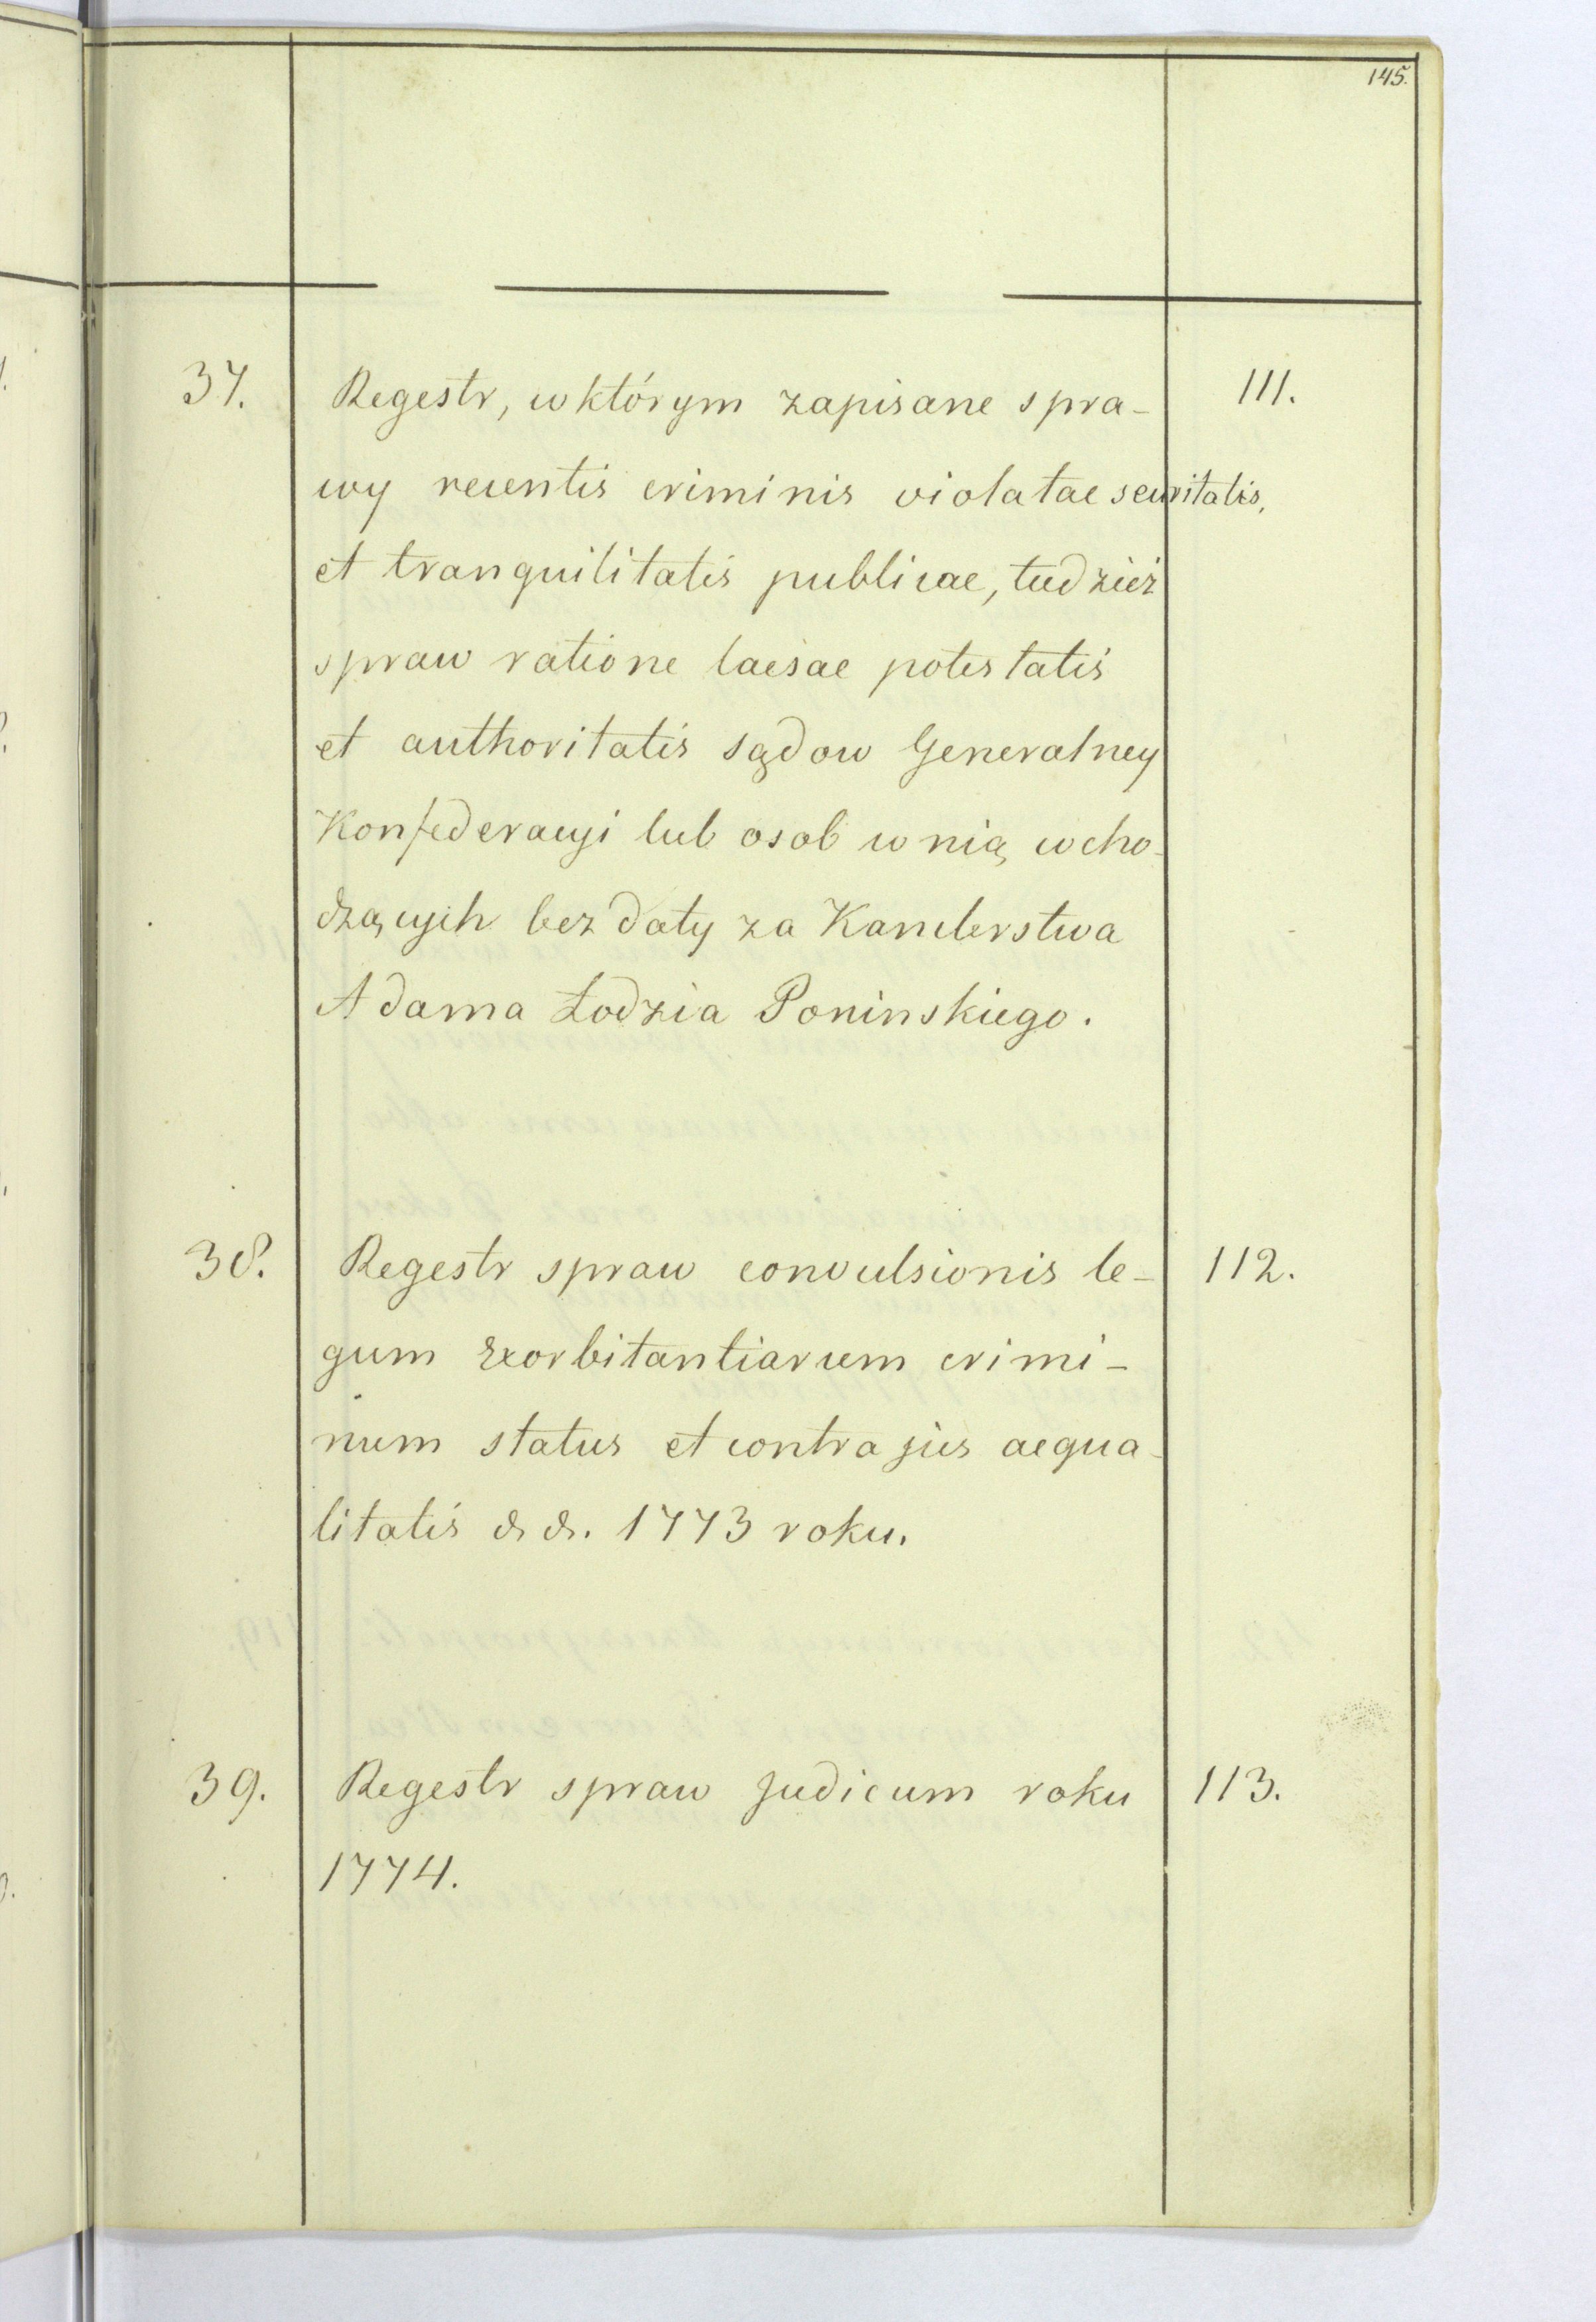 145.
37. Regestr, w którym zapisane spra- 111.
wy recentis criminis violatae securitatis,
et tranquilitatis publicae, tudzież
spraw ratione laesae potestatis
et authoritatis sądow Generalney
Konfederacyi lub osob w nią wcho-
dzących bez daty za Kanclerstwa
Adama Łodzia Poninskiego.
38. Regestr spraw convulsionis le- 112.
gum Exorbitantiarum crimi-
num status et contra jus aequa-
litatis & &. 1773 roku.
39. Regestr spraw Judicum roku 113.
1774.